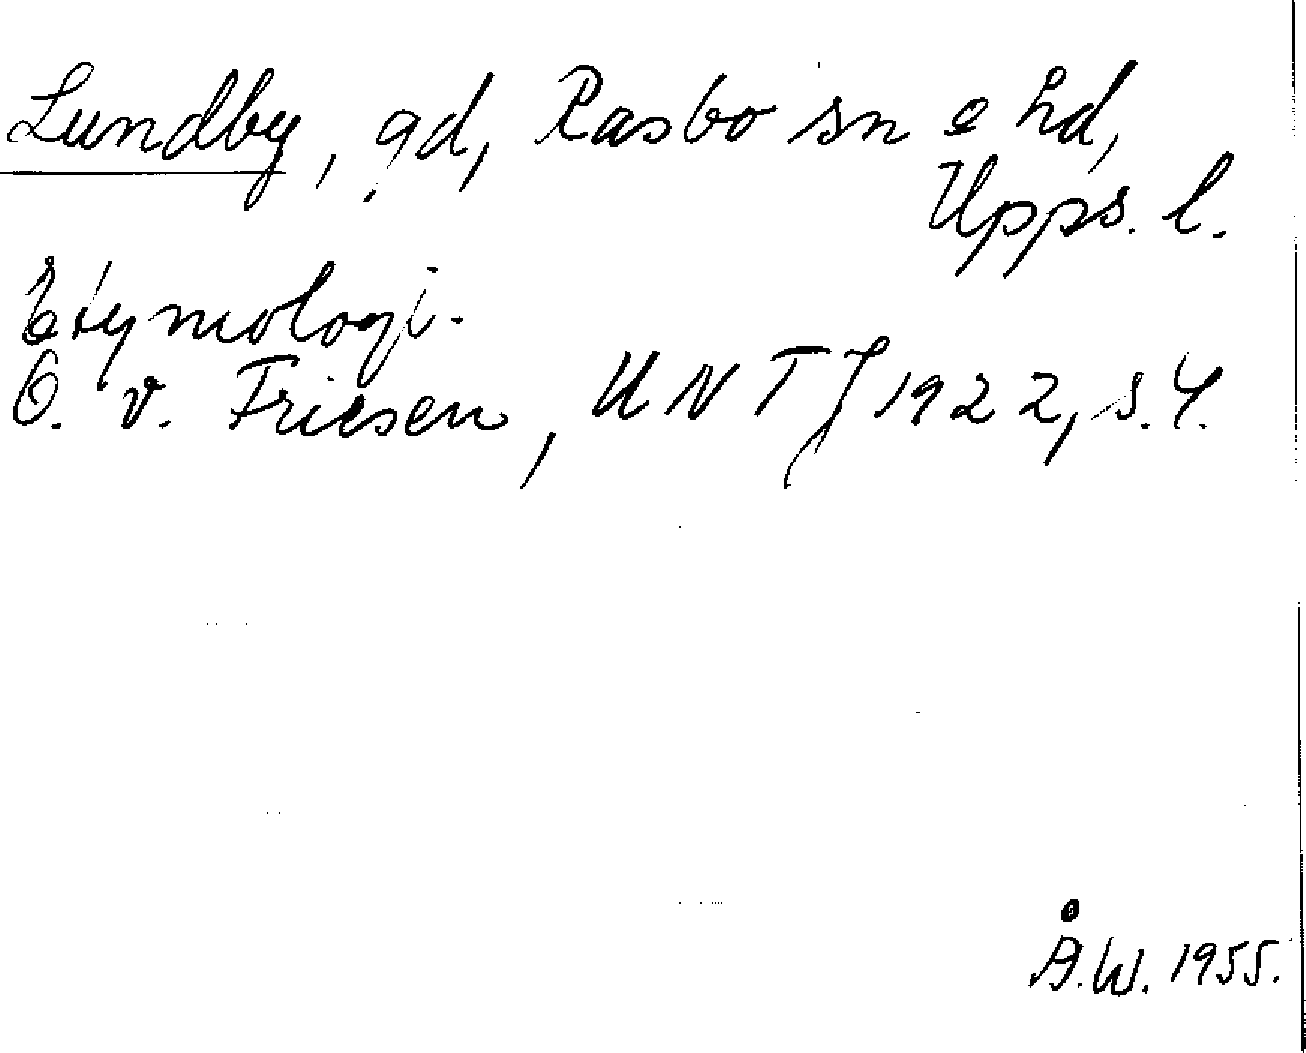 Lundby, gd, Rasbo sn o hd,
Upps. l.
Etymologi.
O. v. Friesen, UNT J 1922, s. 4.
Å.W. 1955.